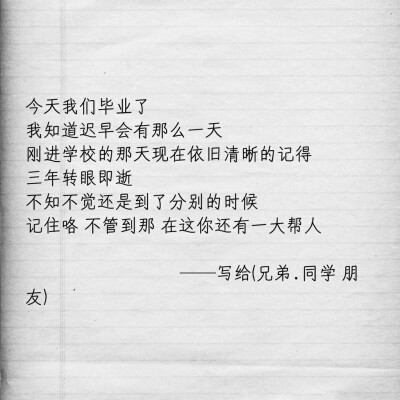 今天我们毕业了
我知道迟早会有那么一天
刚进学校的那天现在依旧清晰的记得
三年转眼即逝
不知不觉还是到了分别的时候
记住咯 不管到那 在这你还有一大帮人
——写给(兄弟.同学 朋
友)